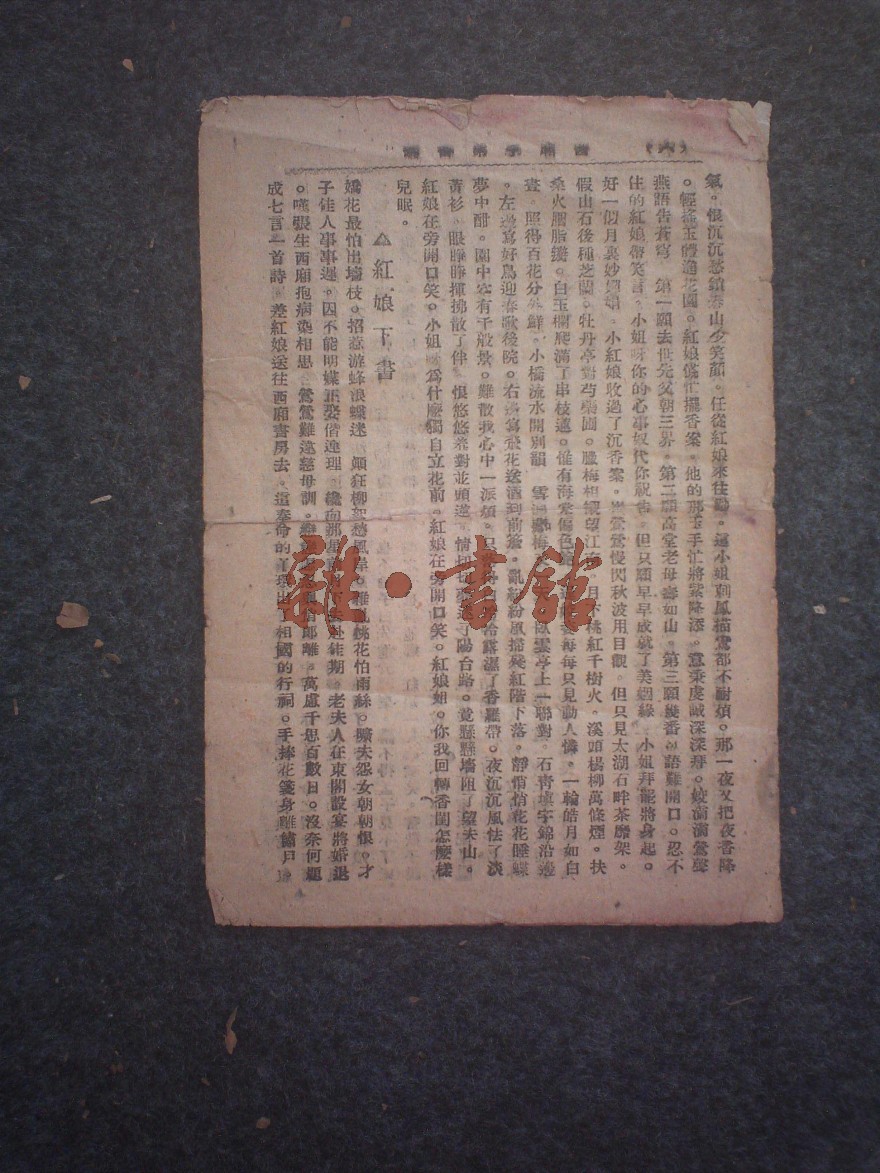 (六)
氣。恨沉沉愁鎖春山少笑顏。任從紅娘來往勸。這小姐刺鳳描鸞都不耐煩。那一夜又把夜香降
。輕搖玉體進花園。紅娘催忙擺香案。他的那玉手忙將紫降添。意秉虔誠深深拜。姣滴滴鶯聲
燕語告蒼穹。第一願去世先父朝三界。第二願高堂老母壽如山。第三願幾番 語難開口。忍不
住的紅娘帶笑言。小姐呀你的心事奴代你祝告。但只願早早成就了美姻緣。小姐拜罷將身起。
好一個月裏妙嬋娟。小紅娘收過了沉香案。崔鶯鶯慢閃秋波用目觀。但只見太湖石畔茶靡架。
假山石後種芝蘭。牡丹亭對芍藥圃。臘梅相襯望江 月下桃紅千樹火。溪頭楊柳萬條煙。扶
桑火胭脂瓣。白玉欄爬滿了串枝蓮。惟有海棠偏色 每每只見動人憐。一輪皓月如白
晝。照得百花分外鮮。小橋流水開別韻 雪 臥雲亭上一聯對。石青填字錦沿邊
。左邊寫好鳥迎春歌後院。右邊寫飛花送酒到前簷。亂紛紛風掃殘紅階下落。靜悄悄花花睡蝶
夢中酣。園中空有千般景。難散我心中一派煩。只 露濕了香羅帶。夜沉沉風怯了淡
黃衫。眼睜睜揮拂散了伴 恨悠悠羞對並頭蓮。情切切 陽台路。覺懸懸墻阻了望夫山。
紅娘在旁開口笑。小姐呀為什麼獨自立花前。紅娘在旁開口笑。紅娘姐。你我回轉香閨怎麼樣
兒眠。
△紅娘下書
嬌花最怕出墻枝。招惹游蜂浪蝶迷 顛狂柳絮愁風岸。 桃花怕雨絲。曠夫怨女朝朝恨。才
子佳人事事遲。因不能明媒正娶偕連理 纔向那星 佳期。老夫人在東閣設宴將婚退
。嘆張生西廂抱病染相思 鶯鶯難違慈母訓。 郎離。萬慮千思百數日。沒奈何題
成七言一首詩。差紅娘送往西廂書房去。這奉命的 出了相國的行祠。手捧花箋身離繡戶
雜·書館